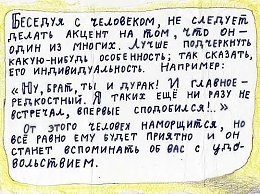 Беседуя с человеком, не следует
делать акцент на том, что он –
один из многих. Лучше подчеркнуть
какую-нибудь особенность; так сказать,
его индивидуальность. Например:
«Ну, брат, ты и дурак! И главное –
редкостный. Я таких ещё ни разу не
встречал, впервые сподобился!..»
От этого человек наморщится, но
всё равно ему будет приятно и он
станет вспоминать об вас с удо-
вольствием.